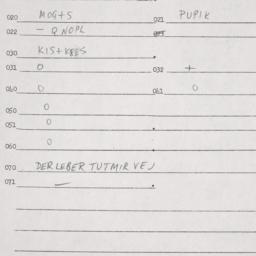 020 MOG+S 021 PUPIK
022 - Q NOPL
030 KIS+KEES
031 O 032 +
040 O 041 O
050 O
051 O
060 O
070 DER LEBER TUT MIR VEJ
071 —